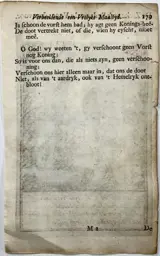 Verbeeldende een Vrolyke Maaltyd. 179
Ja schoon de vorst hem bad, hy agt geen Konings-hof.
De doot vertrekt niet, of die, wien hy eyscht, moet
meê.
O God! wy weeten 't, gy verschoont geen Vorst
nog Koning;
Su is voor ons dan, die als niets zyn, geen verschoo-
ning;
Verschoon ons hier alleen maar in, dat ons de doot
Niet, als van 't aardryk, ook van 't Hemelryk ont-
bloot!
M 2